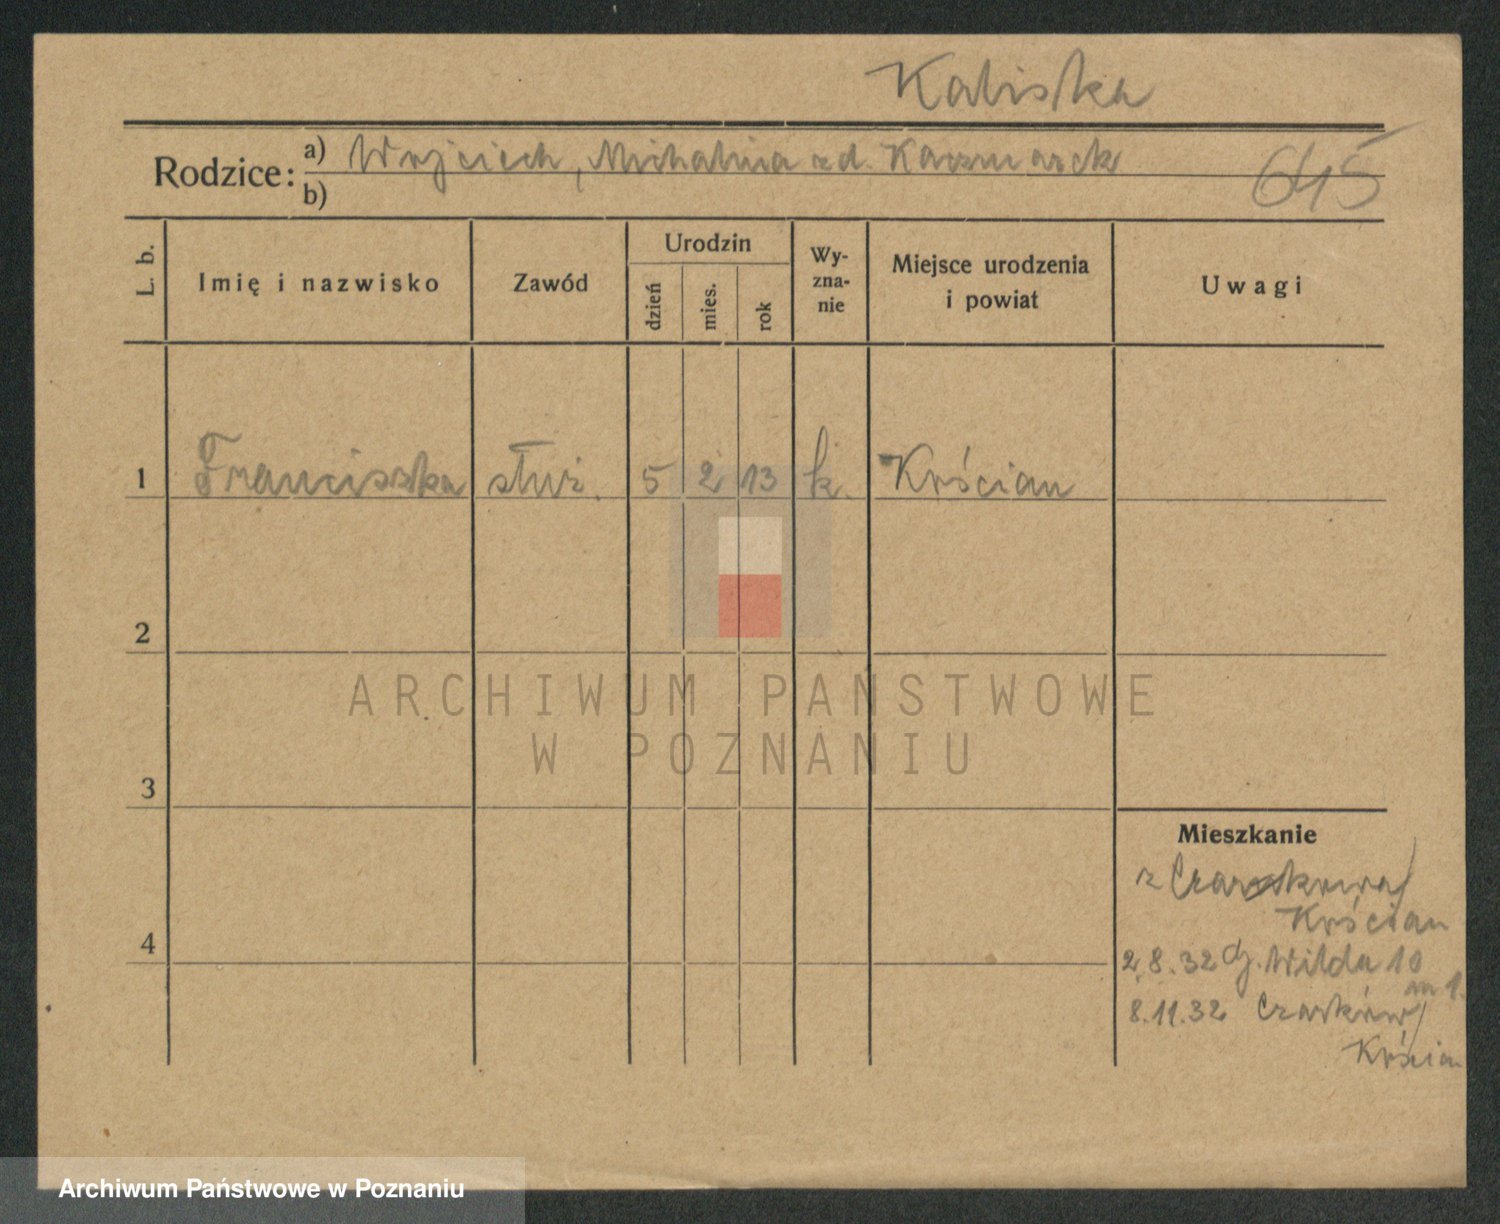 Kaliska
Rodzice: a) Wojciech, Michalina zd. Kaczmarek
b)
615
L. b.
Imię i nazwisko
Zawód
Urodzin
dzień
mies.
rok
Wy-
zna-
nie
Miejsce urodzenia
i powiat
Uwagi
1 Franciszka służ. 5 2 13 k. Kościan
2
3
4
Mieszkanie
z
Kościan
2.8.32 G. Wilda 10
m 1.
8.11.32 Czarków/
Kościan
ARCHIWUM PAŃSTWOWE
W POZNANIU
Archiwum Państwowe w Poznaniu